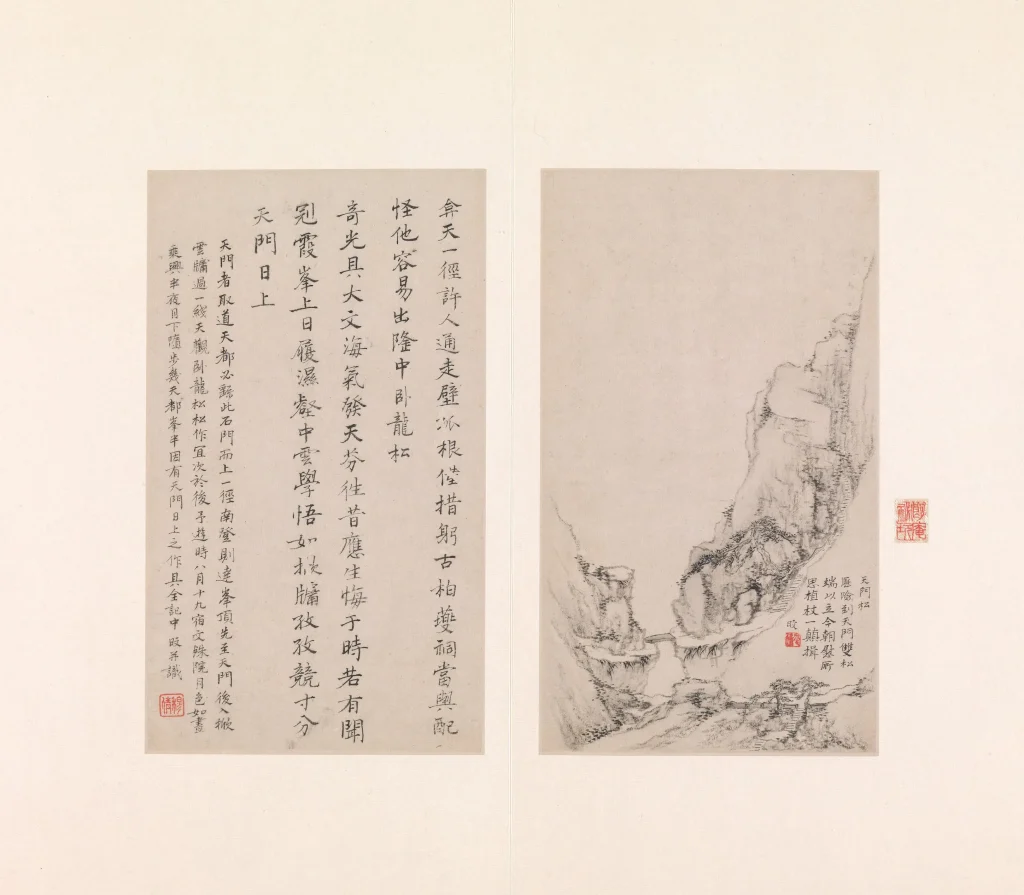 天門松
歷險到天門雙松
端以立今朝發所
思植杖一顛揖
弇天一徑許人通走壁派根倦措躬古柏夔祠當與配
怪他容易出隆中臥龍松
奇光具大文海氣發天芬往昔應生悔于時若有聞
冠霞峯上日履濕壑中雲學悟如窗牖孜孜競寸分
天門日上
天門者取道天都必繇此石門而上一徑南登則達峯頂先至天門後入
雲牖過一綫天觀臥龍松松作宜次於後予遊時八月十九宿文殊院月色如晝
乘興半夜月下隨步幾天都峯半因有天門日上之作具全記中 旼并識